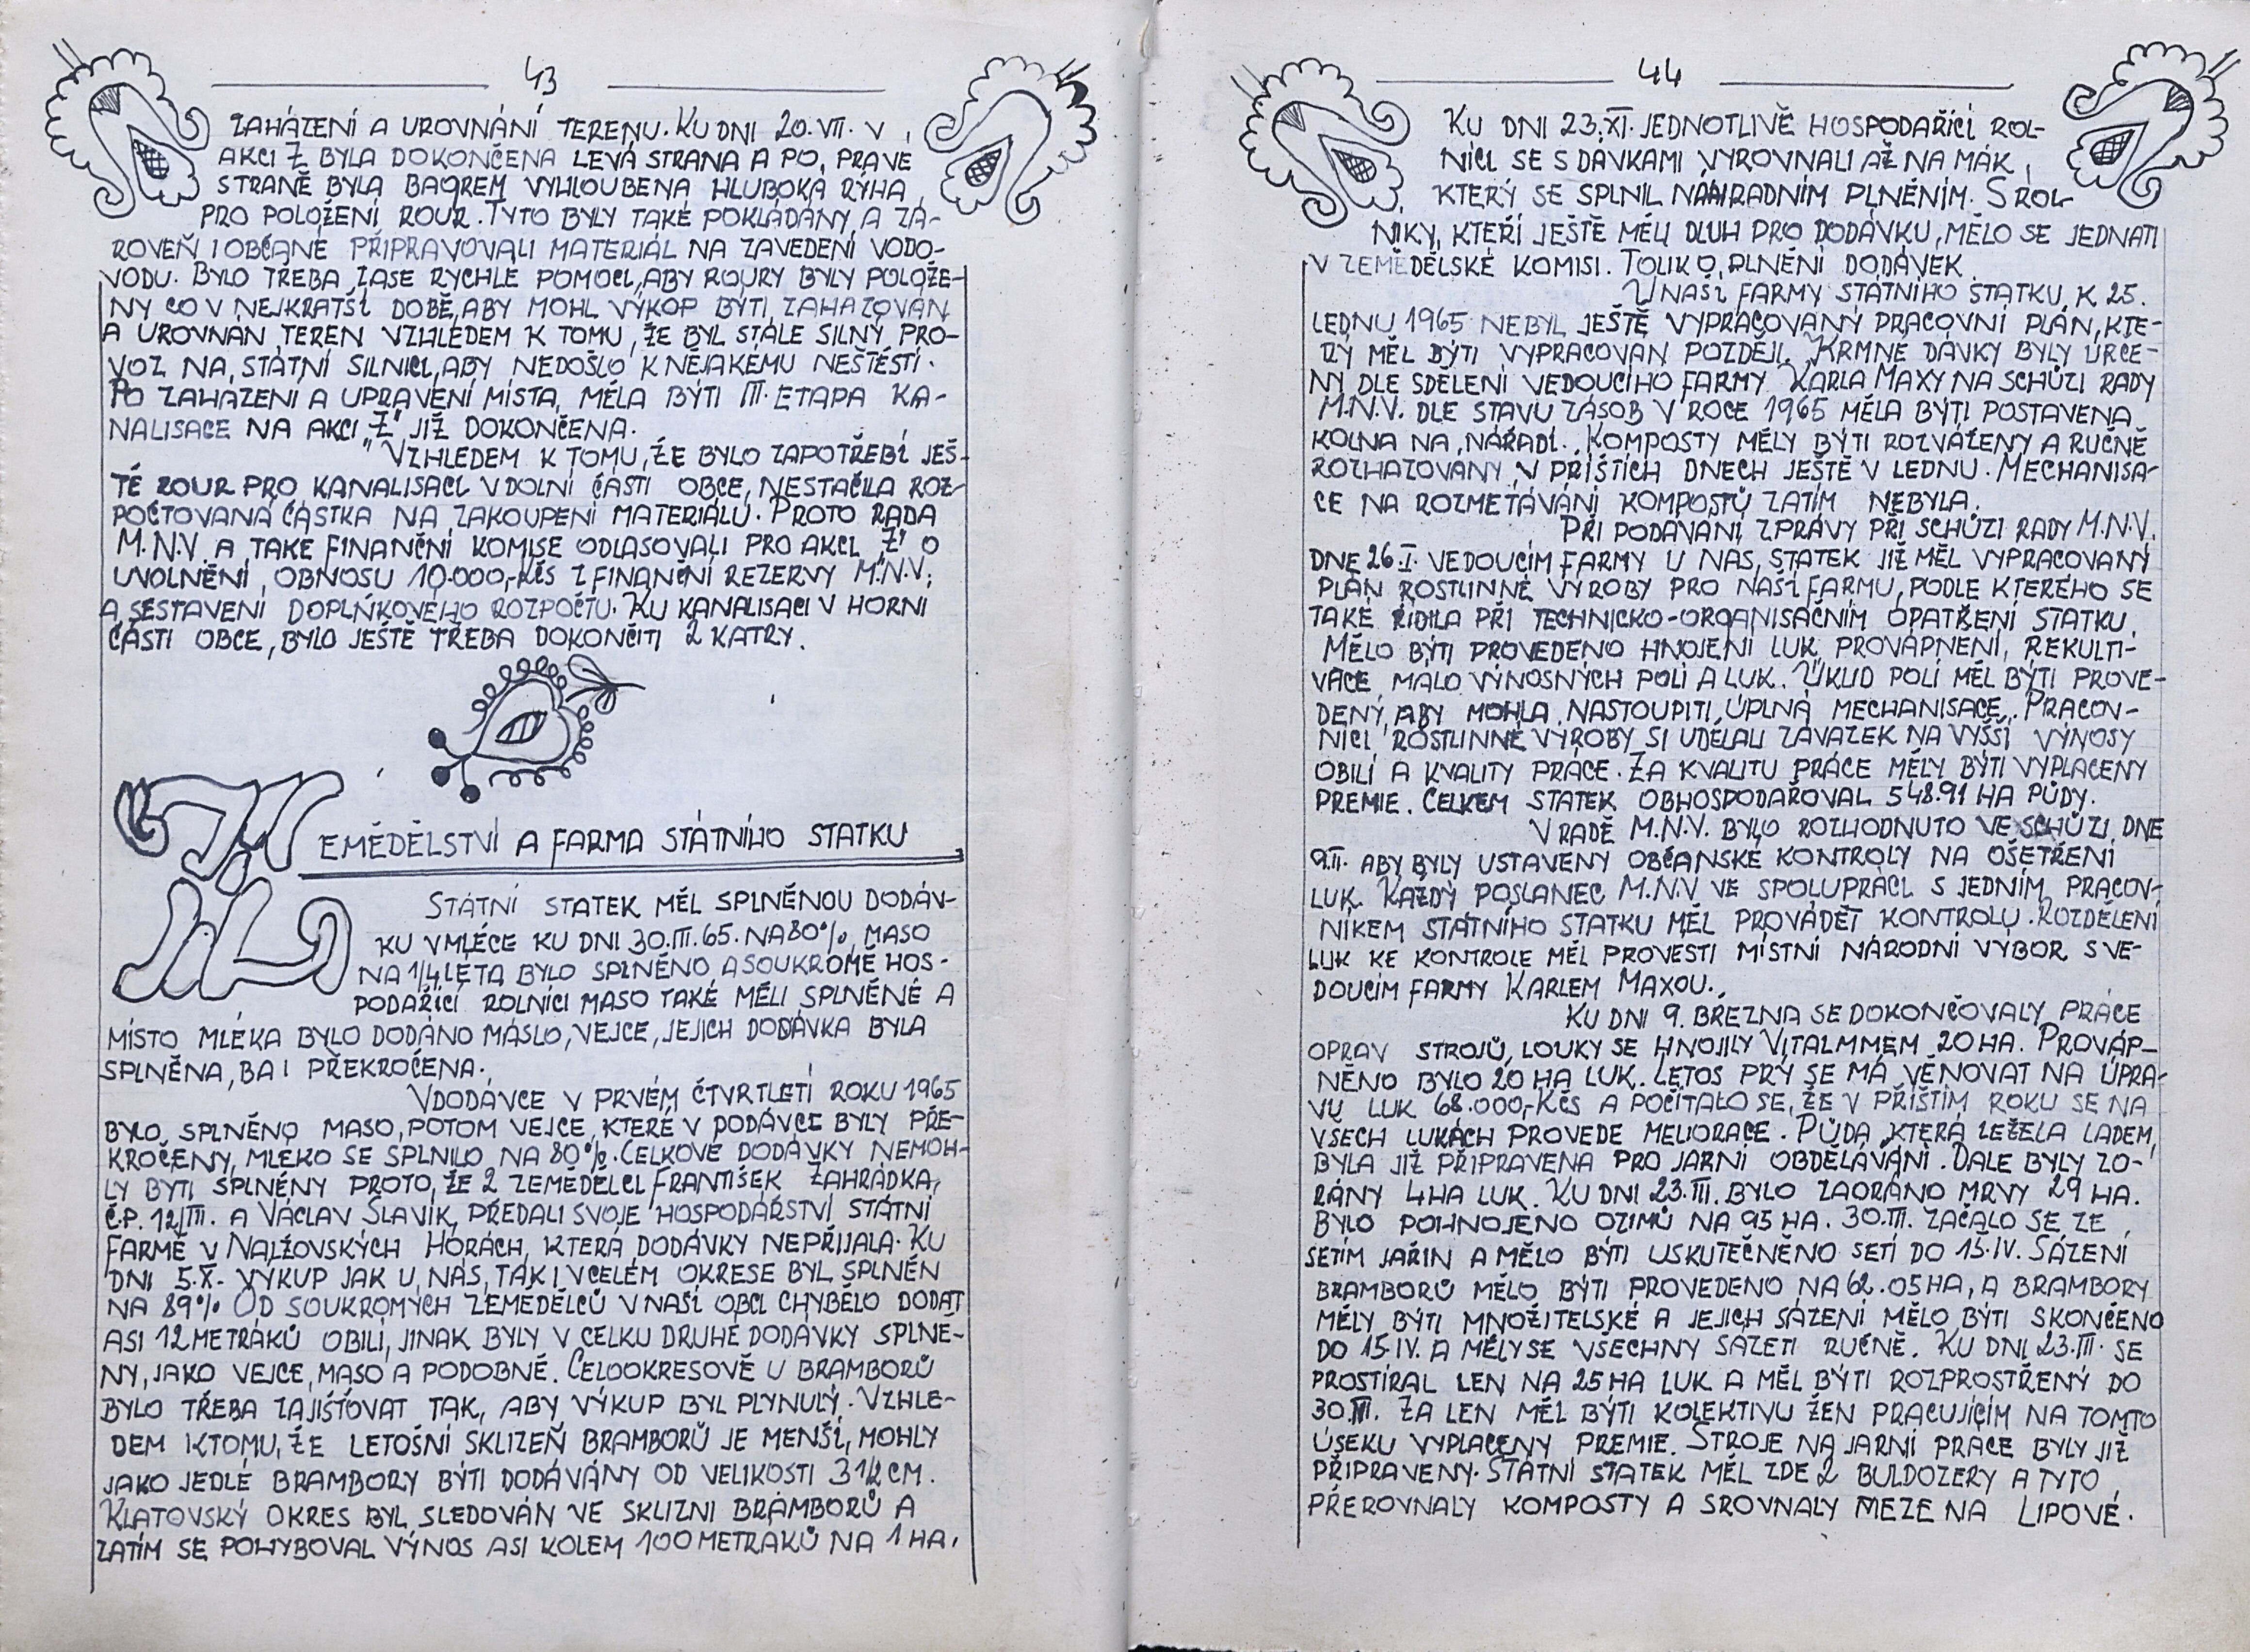 43
ZAHÁZENÍ A UROVNÁNÍ TERENU. KU DNI 20. VII. V
AKCI Z BYLA DOKONČENA LEVÁ STRANA A PO PRAVÉ
STRANĚ BYLA BAGREM VYHLOUBENA HLUBOKÁ RÝHA
PRO POLOŽENÍ ROUR. TYTO BYLY TAKÉ POKLÁDÁNY A ZÁ-
ROVEŇ I OBČANÉ PŘIPRAVOVALI MATERIÁL NA ZAVEDENÍ VODO-
VODU. BYLO TŘEBA ZASE RYCHLE POMOCI, ABY ROURY BYLY POLOŽE-
NY CO V NEJKRATŠÍ DOBĚ, ABY MOHL VÝKOP BÝTI ZAHAZOVÁN
A UROVNÁN TEREN VZHLEDEM K TOMU, ŽE BYL STÁLE SILNÝ PRO-
VOZ NA STÁTNÍ SILNICI, ABY NEDOŠLO K NĚJAKÉMU NEŠTĚSTÍ.
PO ZAHÁZENÍ A UPRAVENÍ MÍSTA, MĚLA BÝTI III. ETAPA KA-
NALISACE NA AKCI „Z" JIŽ DOKONČENA.
VZHLEDEM K TOMU, ŽE BYLO ZAPOTŘEBÍ JEŠ-
TĚ ROUR PRO KANALISACI V DOLNÍ ČÁSTI OBCE, NESTAČILA ROZ-
POČTOVANÁ ČÁSTKA NA ZAKOUPENÍ MATERIÁLU. PROTO RADA
M.N.V. A TAKÉ FINANČNÍ KOMISE ODLASOVALI PRO AKCI „Z" O
UVOLNĚNÍ OBNOSU 10.000,-KČS Z FINANČNÍ REZERVY M.N.V.,
A SESTAVENÍ DOPLŇKOVÉHO ROZPOČTU. KU KANALISACI V HORNÍ
ČÁSTI OBCE, BYLO JEŠTĚ TŘEBA DOKONČITI 2 KATRY.
ZEMĚDĚLSTVÍ A FARMA STÁTNÍHO STATKU
STÁTNÍ STATEK MĚL SPLNĚNOU DODÁV-
KU V MLÉCE KU DNI 30. III. 65. NA 80%, MASO
NA 1/4 LETA BYLO SPLNĚNO A SOUKROMĚ HOS-
PODAŘÍCÍ ROLNÍCI MASO TAKÉ MĚLI SPLNĚNÉ A
MÍSTO MLÉKA BYLO DODÁNO MÁSLO, VEJCE, JEJICH DODÁVKA BYLA
SPLNĚNA, BA I PŘEKROČENA.
V DODÁVCE V PRVÉM ČTVRTLETÍ ROKU 1965
BYLO SPLNĚNO MASO, POTOM VEJCE, KTERÉ V DODÁVCE BYLY PŘE-
KROČENY, MLÉKO SE SPLNILO NA 80%. CELKOVÉ DODÁVKY NEMOH-
LY BÝTI SPLNĚNY PROTO, ŽE 2 ZEMĚDĚLCI FRANTIŠEK ŽAHRÁDKA,
Č.P. 12/III. A VÁCLAV SLAVÍK, PŘEDALI SVOJE HOSPODÁŘSTVÍ STÁTNÍ
FARMĚ V NALŽOVSKÝCH HORÁCH, KTERÁ DODÁVKY NEPŘIJALA. KU
DNI 5.X. VÝKUP JAK U NÁS, TAK I V CELÉM OKRESE BYL SPLNĚN
NA 89% OD SOUKROMÝCH ZEMĚDĚLCŮ V NAŠÍ OBCI CHYBĚLO DODAT
ASI 12 METRÁKŮ OBILÍ, JINAK BYLY V CELKU DRUHÉ DODÁVKY SPLNĚ-
NY, JAKO VEJCE, MASO A PODOBNĚ. CELOOKRESOVĚ U BRAMBORŮ
BYLO TŘEBA ZAJIŠŤOVAT TAK, ABY VÝKUP BYL PLYNULÝ. VZHLE-
DEM K TOMU, ŽE LETOŠNÍ SKLIZEŇ BRAMBORŮ JE MENŠÍ, MOHLY
JAKO JEDLÉ BRAMBORY BÝTI DODÁVÁNY OD VELIKOSTI 3 1/2 CM.
KLATOVSKÝ OKRES BYL SLEDOVÁN VE SKLIZNI BRAMBORŮ A
ZATÍM SE POHYBOVAL VÝNOS ASI KOLEM 100 METRÁKŮ NA 1 HA.
44
KU DNI 23. XI. JEDNOTLIVĚ HOSPODAŘÍCÍ ROL-
NÍCI SE S DÁVKAMI VYROVNALI AŽ NA MÁK,
KTERÝ SE SPLNIL NÁHRADNÍM PLNĚNÍM. S ROL-
NÍKY, KTEŘÍ JEŠTĚ MĚLI DLUH PRO DODÁVKU, MĚLO SE JEDNATI
V ZEMĚDĚLSKÉ KOMISI. TOLIK O PLNĚNÍ DODÁVEK.
U NAŠÍ FARMY STÁTNÍHO STATKU K 25.
LEDNU 1965 NEBYL JEŠTĚ VYPRACOVANÝ PRACOVNÍ PLÁN, KTE-
RÝ MĚL BÝTI VYPRACOVÁN POZDĚJI. KRMNÉ DÁVKY BYLY URČE-
NY DLE SDĚLENÍ VEDOUCÍHO FARMY KARLA MAXY NA SCHŮZI RADY
M.N.V. DLE STAVU ZÁSOB V ROCE 1965 MĚLA BÝTI POSTAVENA
KOLNA NA NÁŘADÍ. KOMPOSTY MĚLY BÝTI ROZVÁŽENY A RUČNĚ
ROZHAZOVÁNY V PŘÍŠTÍCH DNECH JEŠTĚ V LEDNU. MECHANISA-
CE NA ROZMETÁVÁNÍ KOMPOSTŮ ZATÍM NEBYLA.
PŘI PODÁVÁNÍ ZPRÁVY PŘI SCHŮZI RADY M.N.V.
DNE 26. I. VEDOUCÍM FARMY U NÁS, STATEK JIŽ MĚL VYPRACOVANÝ
PLÁN ROSTLINNÉ VÝROBY PRO NAŠÍ FARMU, PODLE KTERÉHO SE
TAKÉ ŘÍDILA PŘI TECHNICKO-ORGANISAČNÍM OPATŘENÍ STATKU.
MĚLO BÝTI PROVEDENO HNOJENÍ LUK, PROVÁPNĚNÍ, REKULTI-
VACE MÁLO VÝNOSNÝCH POLÍ A LUK. ÚKLID POLÍ MĚL BÝTI PROVE-
DENÝ, ABY MOHLA NASTOUPITI ÚPLNÁ MECHANISACE. PRACOV-
NÍCI ROSTLINNÉ VÝROBY SI UDĚLALI ZÁVAZEK NA VYŠŠÍ VÝNOSY
OBILÍ A KVALITY PRÁCE. ZA KVALITU PRÁCE MĚLY BÝTI VYPLACENY
PREMIE. CELKEM STATEK OBHOSPODAŘOVAL 548.91 HA PŮDY.
V RADĚ M.N.V. BYLO ROZHODNUTO VE SCHŮZI DNE
9.II. ABY BYLY USTAVENY OBČANSKÉ KONTROLY NA OŠETŘENÍ
LUK. KAŽDÝ POSLANEC M.N.V. VE SPOLUPRÁCI S JEDNÍM PRACOV-
NÍKEM STÁTNÍHO STATKU MĚL PROVÁDĚT KONTROLU. ROZDĚLENÍ
LUK KE KONTROLE MĚL PROVÉSTI MÍSTNÍ NÁRODNÍ VÝBOR S VE-
DOUCÍM FARMY KARLEM MAXOU.
KU DNI 9. BŘEZNA SE DOKONČOVALY PRÁCE
OPRAV STROJŮ, LOUKY SE HNOJILY VITALMMEM 20 HA. PROVÁP-
NĚNO BYLO 20 HA LUK. LETOS PRÝ SE MÁ VĚNOVAT NA ÚPRA-
VU LUK 68.000,-KČS A POČÍTALO SE, ŽE V PŘÍŠTÍM ROKU SE NA
VŠECH LUKÁCH PROVEDE MELIORACE. PŮDA, KTERÁ LEŽELA LADEM,
BYLA JIŽ PŘIPRAVENA PRO JARNÍ OBDĚLÁVÁNÍ. DÁLE BYLY ZO-
RÁNY 4 HA LUK. KU DNI 23. III. BYLO ZAORÁNO MRVY 29 HA.
BYLO POHNOJENO OZIMŮ NA 95 HA. 30. III. ZAČALO SE ZE
SETÍM JAŘIN A MĚLO BÝTI USKUTEČNĚNO SETÍ DO 15. IV. SÁZENÍ
BRAMBORŮ MĚLO BÝTI PROVEDENO NA 62.05 HA, A BRAMBORY
MĚLY BÝTI MNOŽITELSKÉ A JEJICH SÁZENÍ MĚLO BÝTI SKONČENO
DO 15. IV. A MĚLY SE VŠECHNY SÁZETI RUČNĚ. KU DNI 23. III. SE
PROSTÍRAL LEN NA 25 HA LUK A MĚL BÝTI ROZPROSTŘENÝ DO
30. III. ZA LEN MĚL BÝTI KOLEKTIVU ŽEN PRACUJÍCÍM NA TOMTO
ÚSEKU VYPLACENY PREMIE. STROJE NA JARNÍ PRÁCE BYLY JIŽ
PŘIPRAVENY. STÁTNÍ STATEK MĚL ZDE 2 BULDOZERY A TYTO
PŘEROVNALY KOMPOSTY A SROVNALY MEZE NA LIPOVÉ.